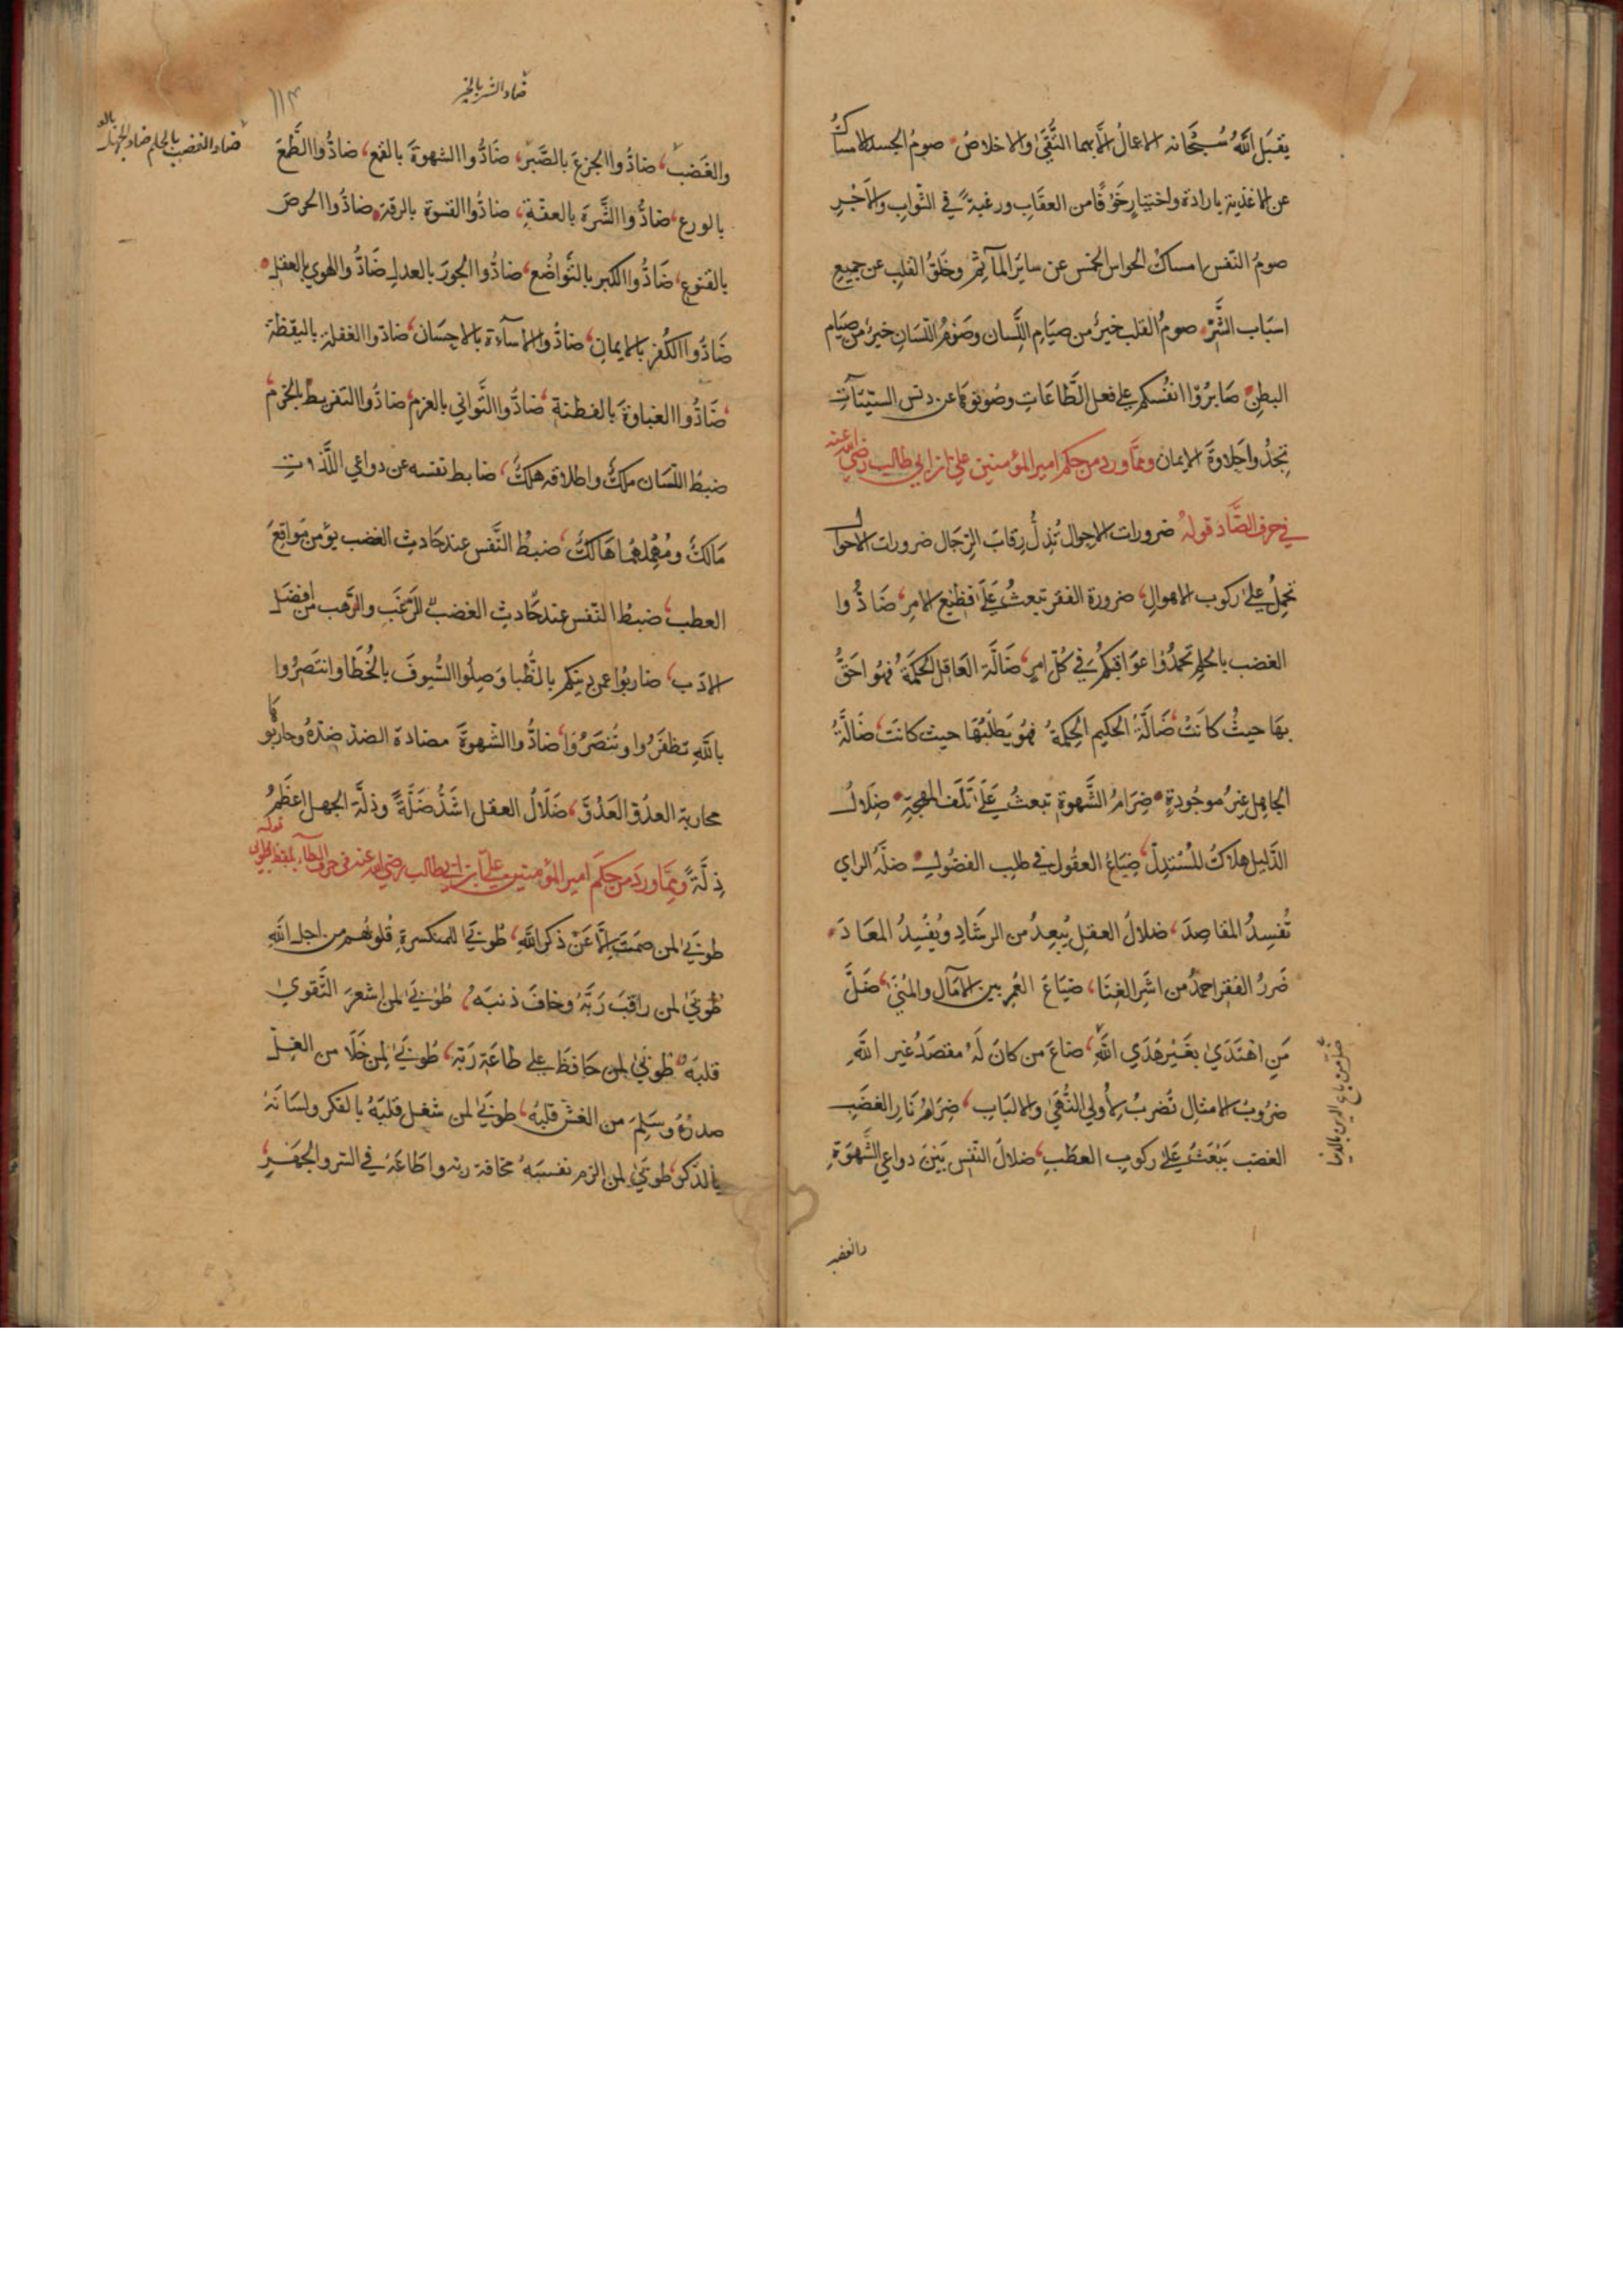 يقبَل اللّٰهُ سُبْحَانه الاعمالُ الّا بهما التُّقَىٰ والاخلاصُ صومُ الجسد الامساكُ
عن الاغذية بارادة واختيارٍ خَوْفًا من العقَابِ ورغبةً في الثوابِ والاَجْرِ
صومُ النّفس امساكُ الحواسِ الخمس عن سائر المآثِمِ وخَلوُّ القلبِ عن جميع
اسبَاب الشَّرِّ صومُ القلب خيرٌ من صيَامِ اللِّسان وصَومُ اللّسَانِ خيرٌ من صِيَام
البطنِ صَابرُوْا انفُسَكم على فعل الطَّاعَاتِ وصُونُوهَا عن دنس السيّئاتِ
تجدُوا حَلاوَةَ الايمان وممّا ورد من حكم امير المؤمنين علي بن ابي طالب رضي الله عنه
في حرف الضّاد قوله ضرورات الاحوال تُذِلُّ رقابَ الرّجَال ضرورات الاحوال
تحمِلُ على ركوب الاهوالِ ضرورة الفقر تبعثُ عَلَى فظيع الامرِ ضَادُّوا
الغضب بالحلمِ تحمدُوا عوَاقبَكُم في كُلّ امرٍ ضَالَّة العَاقل الحكمَةُ فهُو احَقُّ
بهَا حيثُ كانَتْ ضَالَّةُ الحكيم الحِكمةُ فهُوَ يَطلُبُهَا حيث كانَت ضَالَّةُ
الجاهِل غيرُ موجُودةٍ ضِرَامُ الشَّهوةِ تبعثُ عَلَى تَلَف المهجةِ ضَلالُ
الدَّليل هلاكُ المُسْتدلّ ضِيَاعُ العقُول في طلب الفضُولِ ضلّةُ الراي
تُفسِدُ المقاصِدَ ضلالُ العقلِ يُبعِدُ من الرشَادِ ويُفْسِدُ المعَادَ
ضَررُ الفَقرِ احمدُ من اشَرِ الغِنَا ضيَاعُ العُمِر بين الآمَالِ والمُنَىٰ ضَلَّ
مَنِ اهْتَدَىٰ بغَيْر هُدَى اللّٰهِ ضاعَ من كانَ لَهُ مقصَدٌ غير اللّٰهِ
ضلّ من باع الدين بالدنيا
ضرُوبُ الامثالِ تُضرَبُ لِأولي النُّهىٰ والالبَابِ ضِرَامُ نَارِ الغضَبِ
الغضب يَبْعَثُ عَلَى ركوبِ العطَبِ ضلالُ النّفس بَيْنَ دواعي الشّهوَةِ
والغضب
ضادوا الشر بالخير
١١٣
ضادوا الغضب بالحلم ضادوا الجهل بالعلم
والغَضَب ضادُّوا الجزعَ بالصَّبْرِ ضَادُّوا الشهوةَ بالقمع ضادُّوا الطَّمَعَ
بالورع ضادُّوا الشَّرَهَ بالعفّةِ ضادُّوا القسوة بالرقة ضادُّوا الحرصَ
بالقنوع ضَادُّوا الكبر بالتَّواضُع ضادُّوا الجورَ بالعدل ضَادُّوا الهوى بالعقل
ضَادُّوا الكُفرَ بالايمانِ ضادُّوا الاسآءة بالاحِسَان ضادّوا الغفلة باليقظة
ضَادُّوا الغباوَةَ بالفطنة ضادُّوا التَّواني بالعزم ضادُّوا التفريط بالحزم
ضبطُ اللّسَان ملكٌ واطلاقه هلكٌ ضابط نفسه عن دواعي اللَّذات
مَالكٌ ومُهمِلُهَا هَالكٌ ضبطُ النَّفس عند حَادثِ الغضب يؤمن مَواقِعَ
العطبِ ضبطُ النّفس عند حَادثِ الغضب للرَّغَبِ والرَّهب من افضَلِ
الادَب ضاربُوا عن دينكم بالظُّبا وَصِلُوا السُّيوفَ بالخُطَا وانتَصِرُوا
باللّٰهِ تظفَرُوا وتُنصَرُوا ضادُّوا الشهوةَ مضادة الضدّ ضدّهُ وحاربُوها
محاربة العدُوّ العَدُوَّ ضَلَالُ العقل اشَدُّ ضَلَّةً وذلّة الجهل اعظَمُ
ذِلَّةً وممّا ورَد من حكَم امير المؤمنين علي بن ابي طالب رضي الله عنه في حرف الطآء بلفظ طوبى قوله
طوبَىٰ لمن صَمَتَ الّا عَنْ ذكر اللّٰهِ طُوبَىٰ للمنكسرةِ قلوبُهُم من اجل اللّٰهِ
طُوبَىٰ لمن راقبَ رَبَّهُ وخافَ ذنبَهُ طُوبَىٰ لمن اشعرَ التَّقوىٰ
قلبَهُ طُوبَىٰ لمن حَافظَ على طاعَةِ رَبّهِ طُوبَىٰ لمن خَلَا من الغِلّ
صدرُهُ وسَلِمَ من الغشّ قلبُهُ طوبَىٰ لمن شغل قلبَهُ بالفكر ولسَانَهُ
بالذّكر طوبَىٰ لمن الزم نفسَهُ مخافة ربه واطَاعَهُ في السّر والجَهْرِ